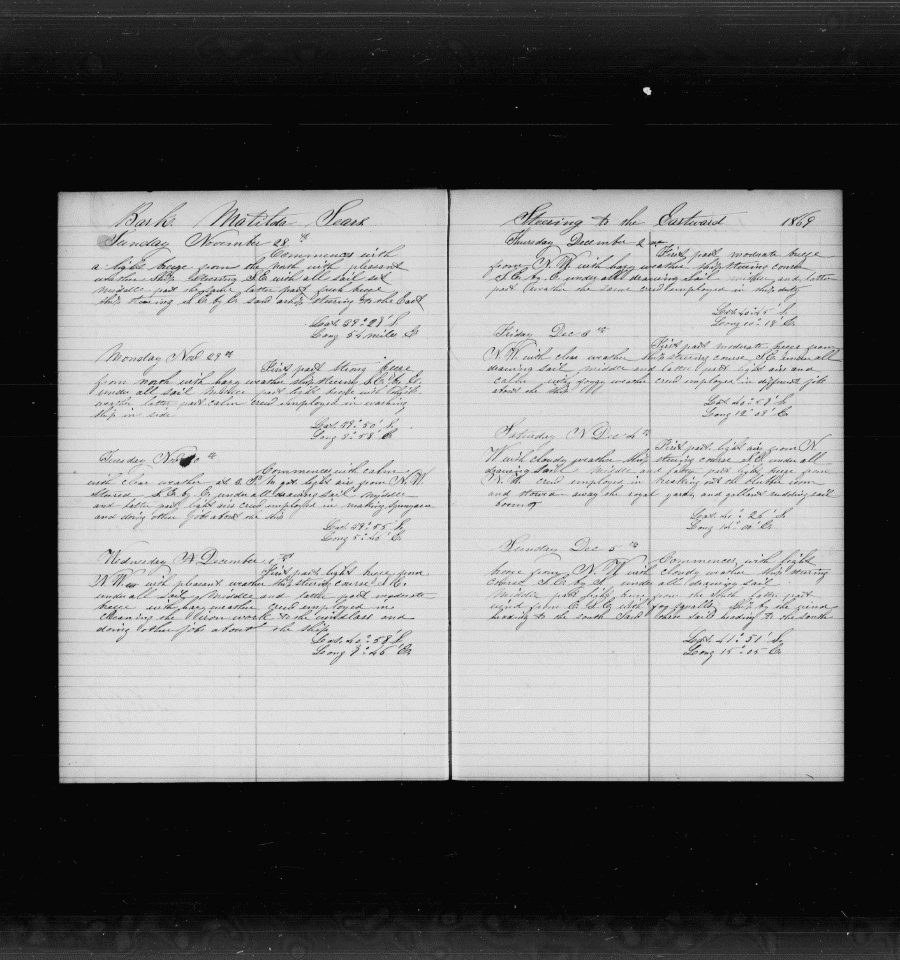 Bark Matilda Sears
Sunday November 28th
Commences with
a light breeze from the north with pleasant
weather ship steering S.E. with all sail set
middle part the same latter part fresh breeze
ship steering S.E. by E. said ship steering to the East
Lat 39° 21' S.
Long 54 miles E.
Monday Nov 29th
First part strong breeze
from north with hazy weather ship steering S.E. by E.
under all sail middle part light breeze with thick
weather latter part calm crew employed in washing
ship in side
Lat 39° 50' S.
Long 3° 53' E.
Tuesday Nov 30th
Commences with calm
with clear weather at 6 P. M got light airs from N.W.
Steered S.E. by E. under all drawing sail middle
and latter part light airs crew employed in making
and doing other jobs about the ship
Lat 39° 55' S.
Long 5° 40' E.
Wednesday December 1st
First part light breeze from
N.W. with pleasant weather ship steering course S.E.
under all sail, Middle and latter part moderate
breeze with hazy weather crew employed in
cleaning the iron work to the windlass and
doing other jobs about the ship
Lat. 40° 58' S.
Long 8° 46' E.
Steering to the Eastward 1869
Thursday December 2nd
First part moderate breeze
from N.W. with hazy weather ship steering course
S.E. by E. under all drawing sail middle and latter
part weather the same crew employed in ship duty
Lat 40° 45' S.
Long 10° 18' E.
Friday Dec 3rd
First part moderate breeze from
N.W with clear weather ship steering course S.E under all
drawing sail middle and latter part light airs and
calm with foggy weather crew employed in different jobs
about the ship
Lat 40° 58' S.
Long 12° 08' E.
Saturday Dec 4th
First part light airs from N.
W with cloudy weather ship steering course S.E. under all
drawing sail Middle and latter part light breeze from
N.W. crew employed in breaking out the blubber room
and stowing away the royal yards and gallant studding sail
booms
Lat 41° 26' S.
Long 14° 00' E.
Sunday Dec 5th
Commences with light
breeze from N.W with cloudy weather ship steering
course S.E. by S. under all drawing sail
Middle part light breeze from the South latter part
wind from E.S.E with fog squalls ship by the wind
heading to the south Said course sail heading to the south
Lat. 41° 51' S.
Long 15° 05' E.